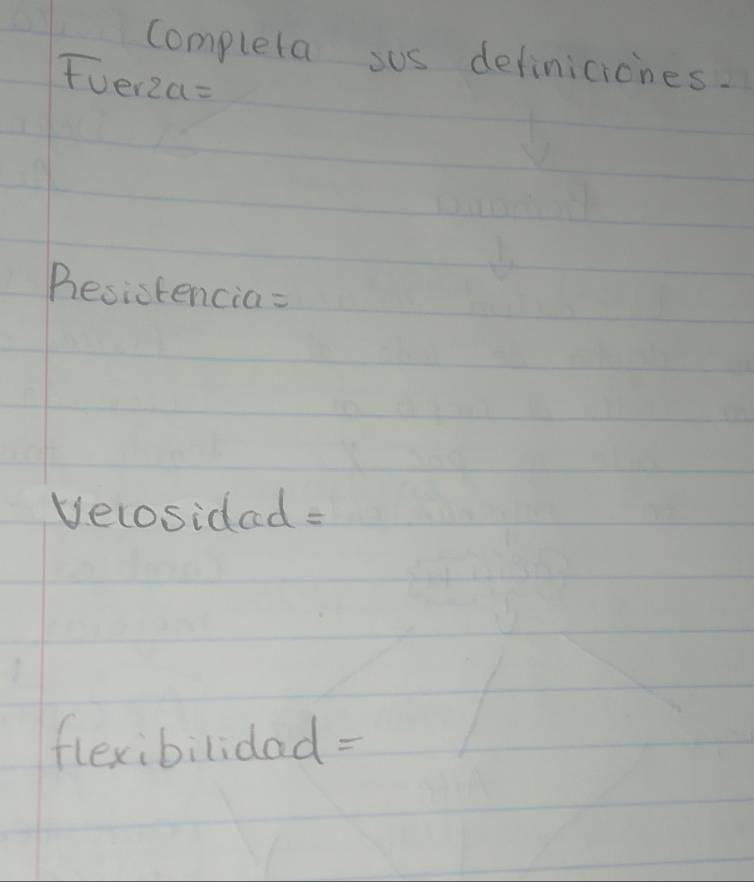 Completa sus definiciones.
Fuerza=
Resistencia=
Velosidad=
flexibilidad=